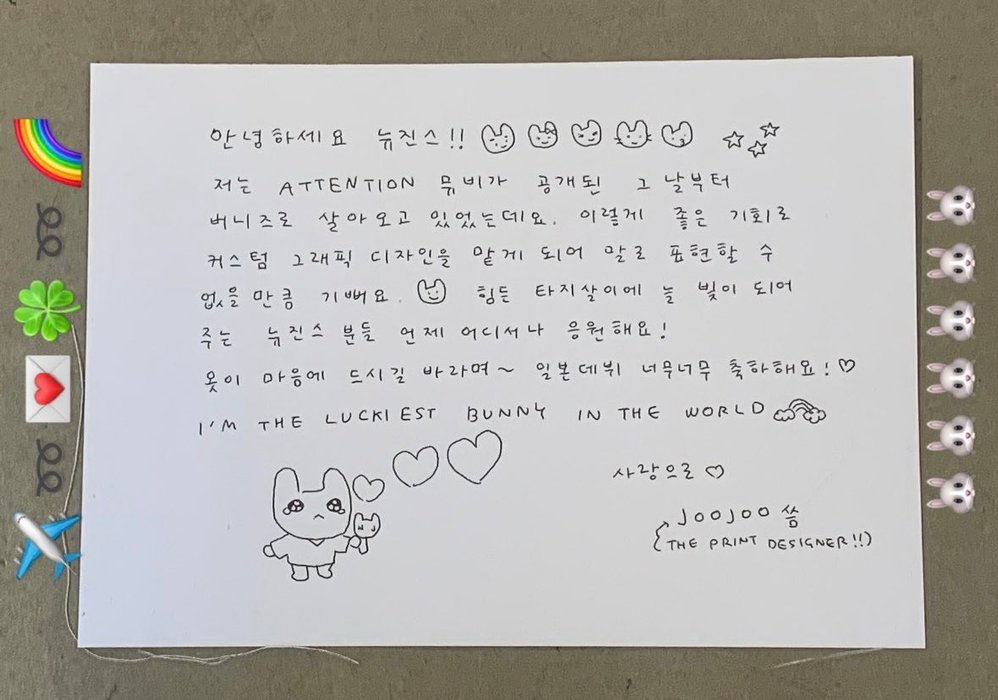 안녕하세요 뉴진스!!
저는 ATTENTION 뮤비가 공개된 그 날부터
버니즈로 살아오고 있었는데요. 이렇게 좋은 기회로
커스텀 그래픽 디자인을 맡게 되어 말로 표현할 수
없을 만큼 기뻐요. 힘든 타지살이에 늘 빛이 되어
주는 뉴진스 분들 언제 어디서나 응원해요!
옷이 마음에 드시길 바라며~ 일본데뷔 너무너무 축하해요!♡
I'M THE LUCKIEST BUNNY IN THE WORLD
사랑으로 ♡
JOOJOO 씀
(THE PRINT DESIGNER!!)